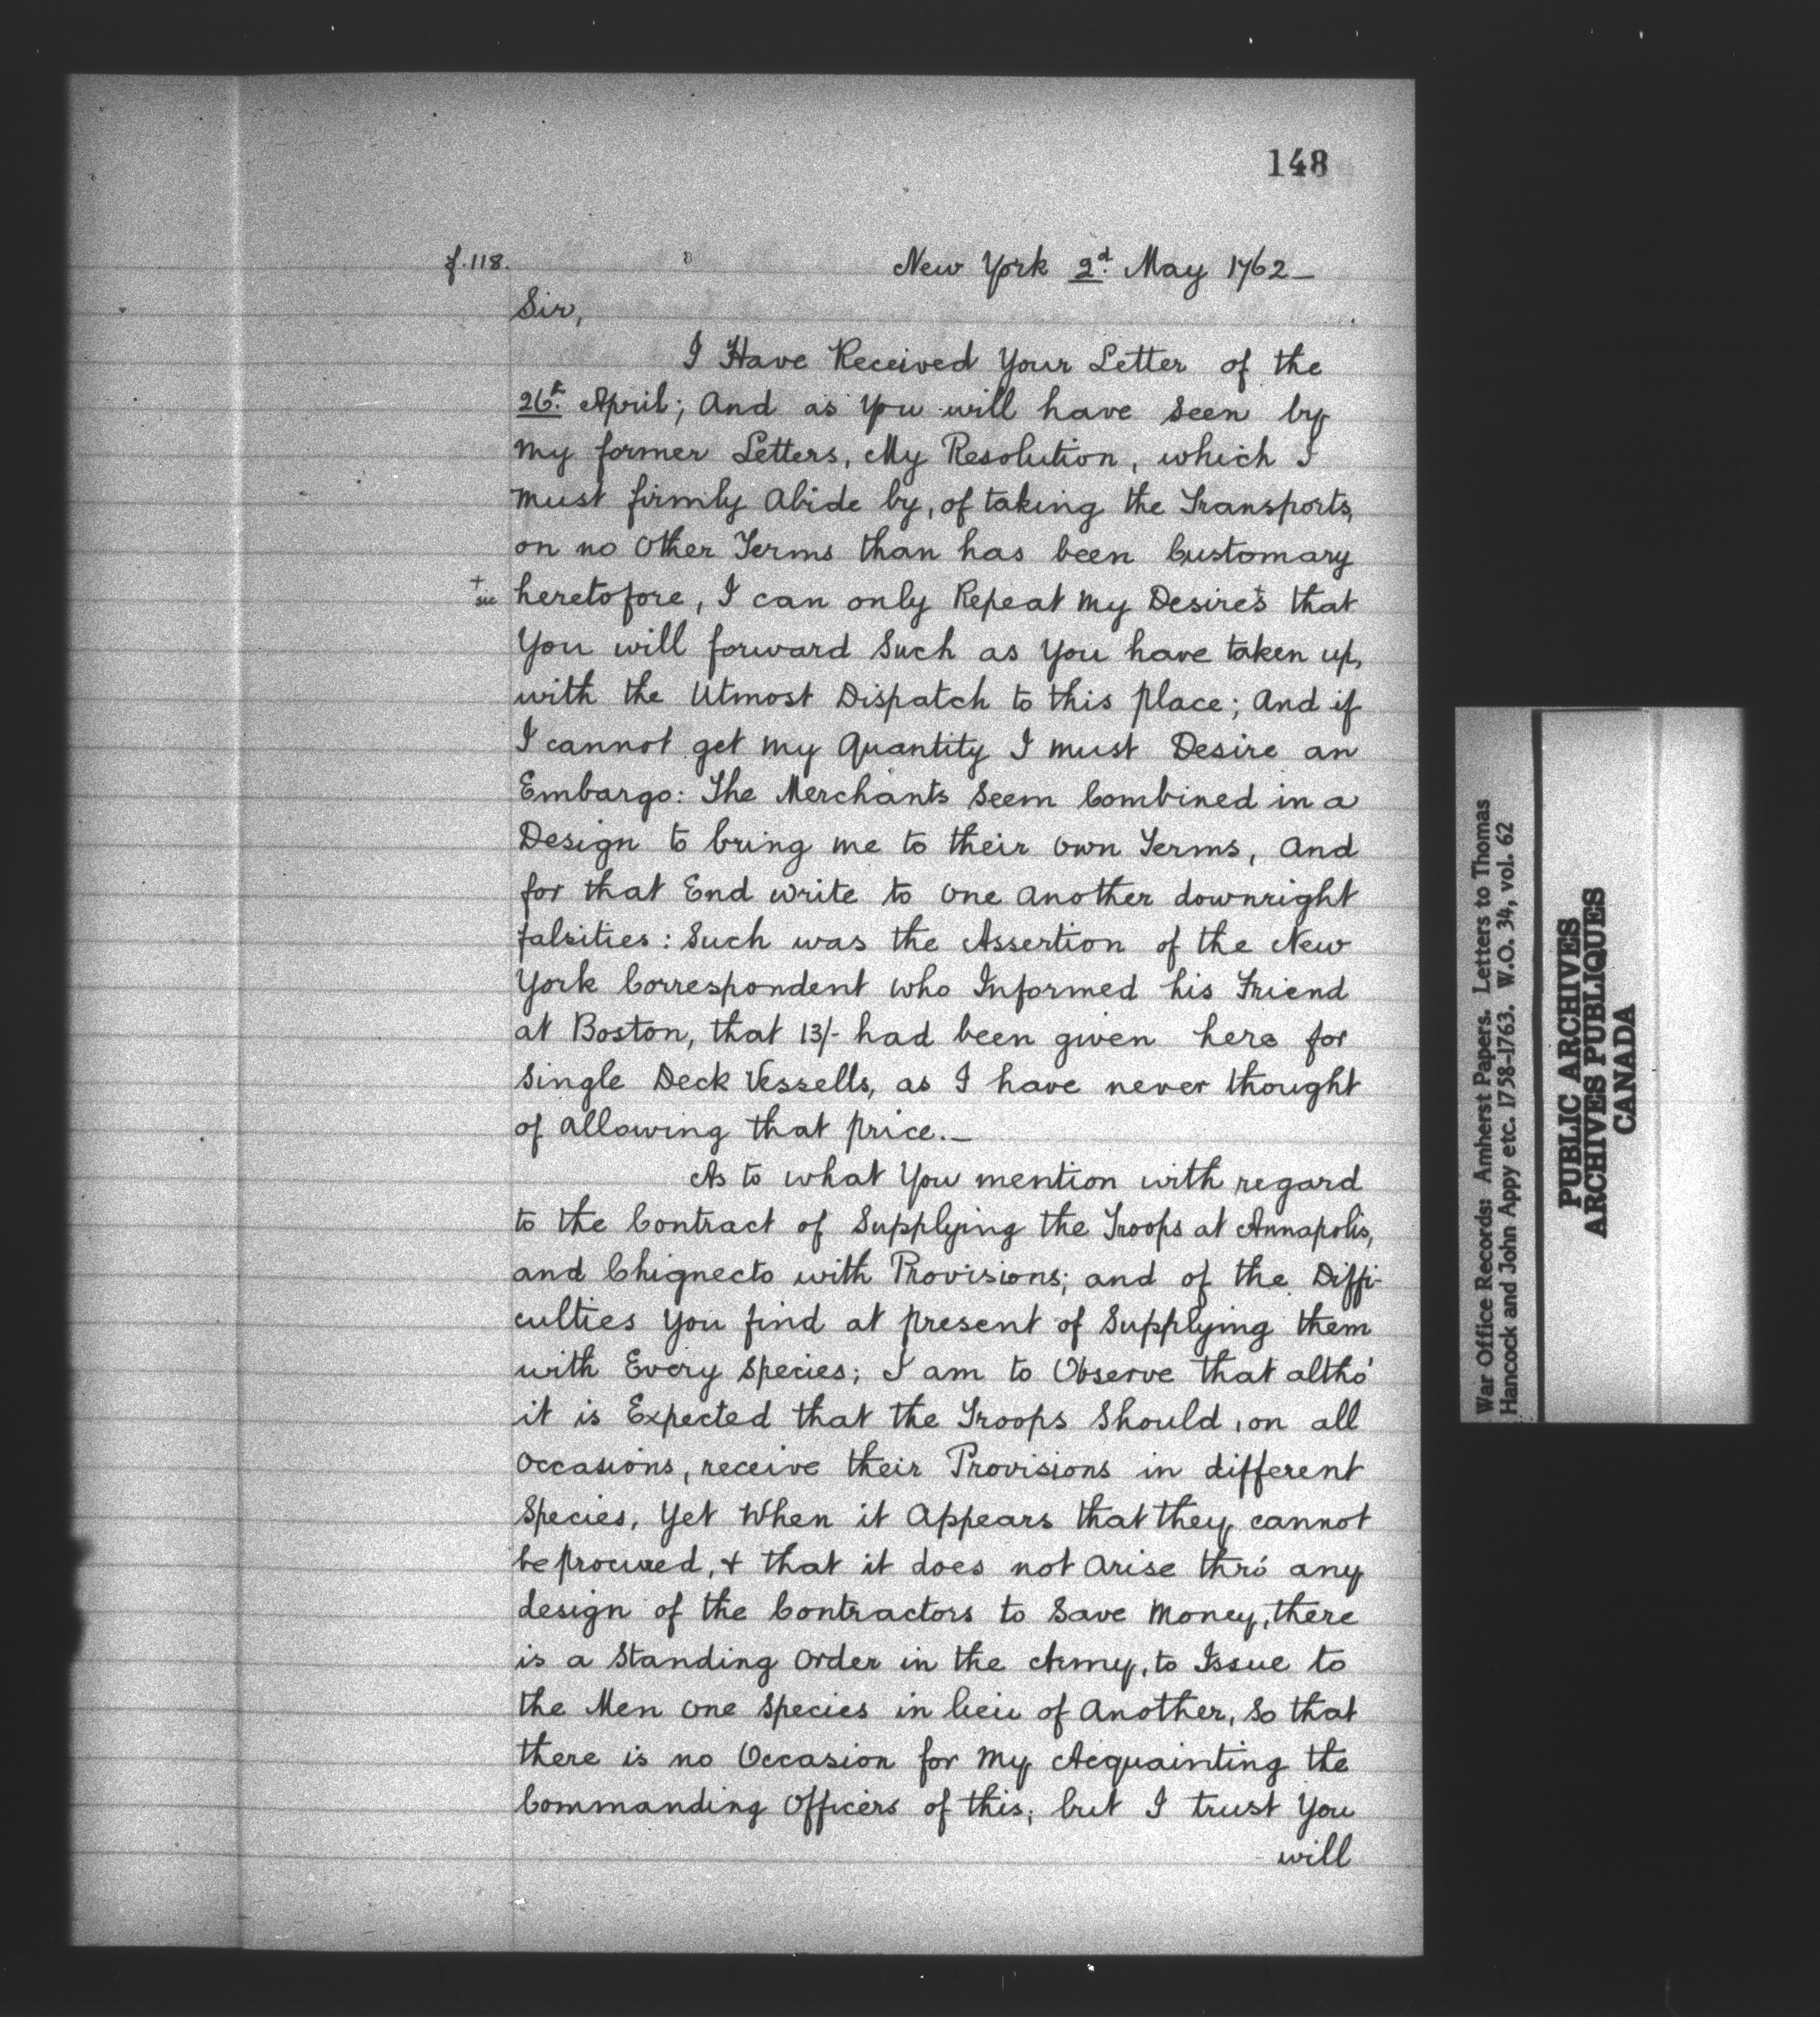 148
f.118.
New York 2d. May 1762_
Sir,
I Have Received Your Letter of the
26t. April; And as You will have Seen by
My former Letters, My Resolution, which I
Must firmly Abide by, of taking the Transports,
on no Other Terms than has been Customary
+ sic
heretofore, I can only Repeat My Desire+s that
You will forward Such as You have taken up,
with the Utmost Dispatch to this place; And if
I cannot get My Quantity I Must Desire an
Embargo: The Merchants Seem Combined in a
Design to bring me to their own Terms, and
for that End write to one another downright
falsities: Such was the Assertion of the New
York Correspondent who Informed his Friend
at Boston, that 13/- had been given here for
Single Deck Vessells, as I have never thought
of allowing that price._
As to what You mention with regard
to the Contract of Supplying the Troops at Annapolis,
and Chignecto with Provisions; and of the Diffi-
culties You find at present of Supplying them
with Every Species; I am to Observe that altho'
it is Expected that the Troops Should, on all
Occasions, receive their Provisions in different
Species, Yet When it Appears that they cannot
be procured, & that it does not Arise thro' any
design of the Contractors to Save Money, there
is a Standing Order in the Army, to Issue to
the Men one Species in lieu of Another, So that
there is no Occasion for My Acquainting the
Commanding Officers of this; but I trust You
will
War Office Records: Amherst Papers. Letters to Thomas
Hancock and John Appy etc. 1758-1763. W.O. 34, vol. 62
PUBLIC ARCHIVES
ARCHIVES PUBLIQUES
CANADA